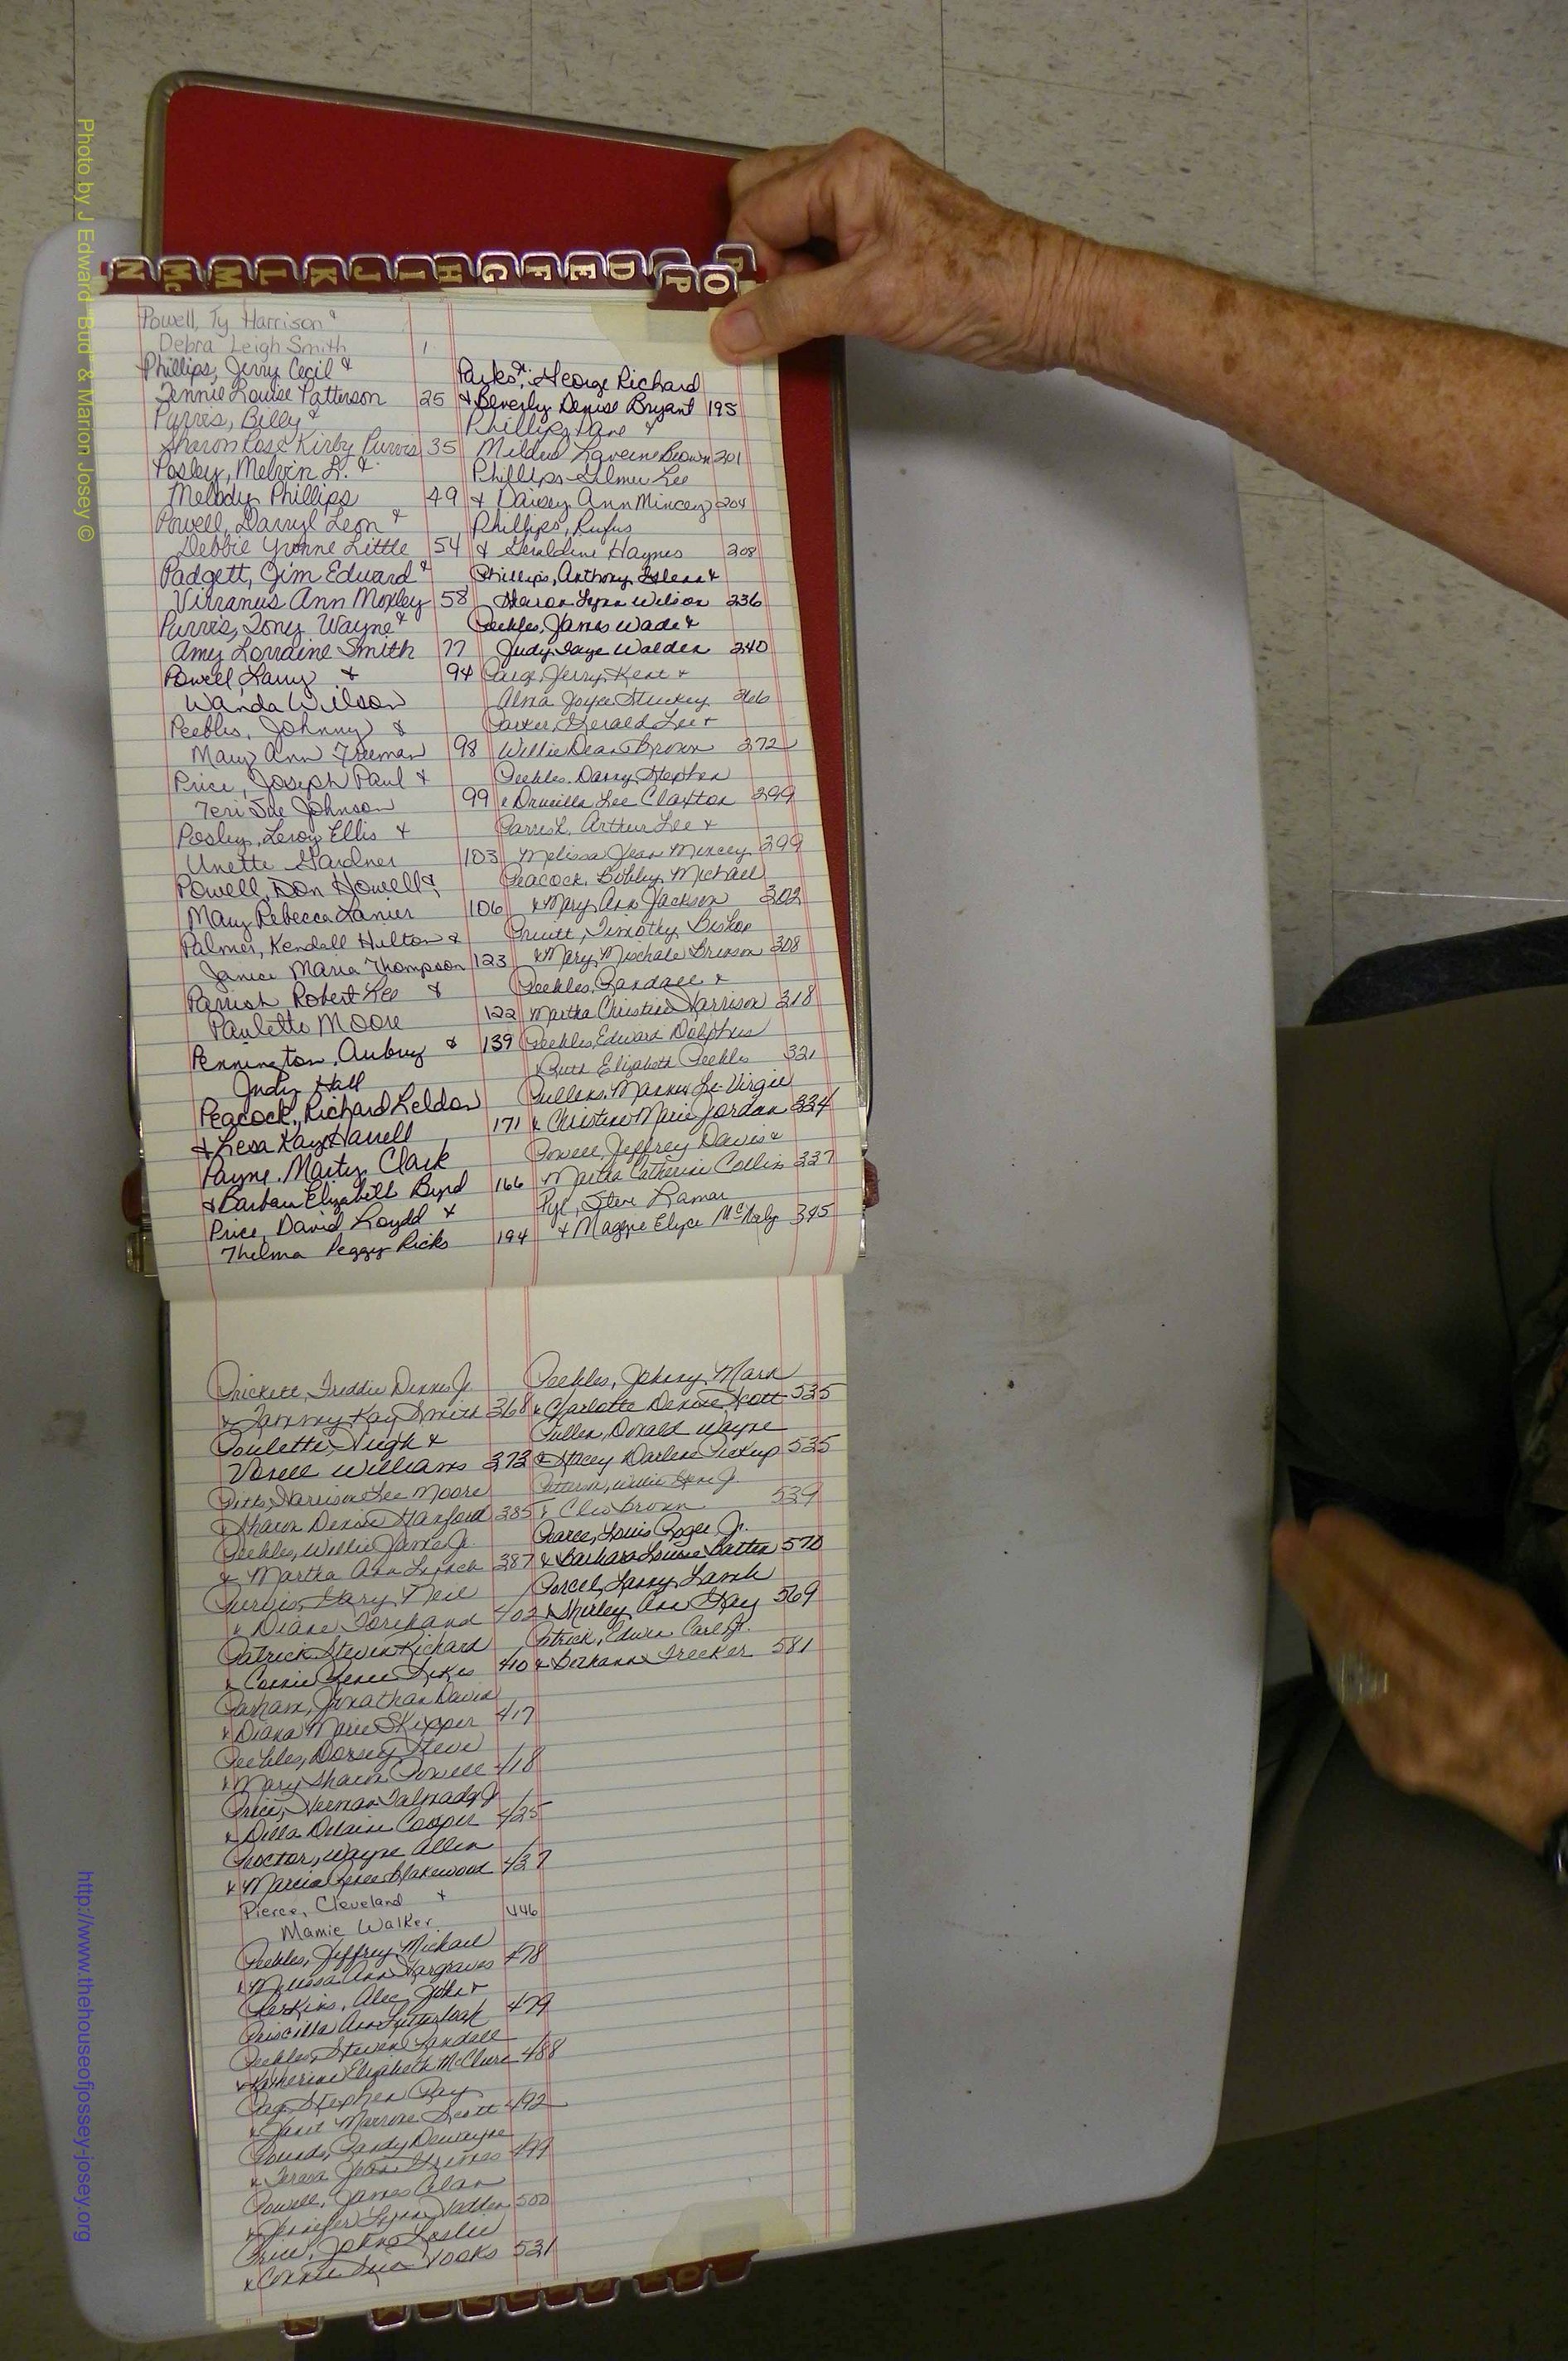 Photo by J Edward "Bud" & Marion Josey ©
N Mc M L K J I H G F E D P O
Powell, Ty Harrison &
Debra Leigh Smith 1
Phillips, Jerry Cecil &
Jennie Louise Patterson 25
Purvis, Billy &
Sharon Rose Kirby Purvis 35
Posley, Melvin L. &
Melody Phillips 49
Powell, Darryl Leon &
Debbie Yvonne Little 54
Padgett, Jim Edward &
Virranus Ann Moxley 58
Purvis, Tony Wayne &
Amy Lorraine Smith 77
Powell, Larry & 94
Wanda Wilson
Peebles, Johnny &
Mary Ann Freeman 98
Price, Joseph Paul &
Teri Sue Johnson 99
Posley, Leroy Ellis &
Unette Gardner 103
Powell, Don Howell &
Mary Rebecca Lanier 106
Palmer, Kendall Hilton &
Janice Maria Thompson 123
Parrish Robert Lee &
Paulette Moore 122
Pennington, Aubrey & 139
Judy Hall
Peacock, Richard Leldon
& Lesa Kay Harrell 171
Payne, Marty Clark
& Barbara Elizabeth Byrd 166
Price, David Loydd &
Thelma Peggy Ricks 194
Parks, George Richard
& Beverly Denise Bryant 195
Phillips, Dane &
Mildred Laverne Brown 201
Phillips Gilmer Lee
& Daisey Ann Mincey 204
Phillips, Rufus
& Geraldine Haynes 208
Phillips, Anthony Glenn &
Sharon Lynn Wilson 236
Peebles, James Wade &
Judy Faye Walden 240
Paige, Jerry Kent &
Alma Joyce Stuckey 266
Parker, Gerald Lee &
Willie Dean Brown 272
Peebles, Danny Stephen
& Drucilla Lee Claxton 299
Parrish, Arthur Lee &
Melissa Jean Mincey 299
Peacock, Bobby Michael
& Mary Ann Jackson 302
Pruitt, Timothy Bishop
& Mary Mischale Brinson 308
Peebles, Randall &
Martha Christine Harrison 318
Peebles, Edward Dolphus
& Ruth Elizabeth Peebles 321
Pullens, Marcus Le-Virgil
& Christine Marie Jordan 334
Powell, Jeffrey Davis &
Martha Catherine Collins 337
Pye, Steve Lamar
& Maggie Elyce McNeely 345
Prickett, Freddie Dennis Jr.
& Tammy Kay Smith 368
Poulette, Hugh &
Vonell Williams 373
Pitts, Harrison Lee Moore
& Sharon Denise Hanford 385
Peebles, Willie James Jr.
& Martha Ann Lynch 387
Purvis, Gary Neil
& Diane Forehand 402
Patrick, Steven Richard
& Connie Renee Sykes 410
Parham, Jonathan David
& Diana Marie Skipper 417
Peebles, Dorsey Steve
& Mary Sharon Powell 418
Price, Vernon Talmadge Jr
& Della Delaine Cooper 425
Proctor, Wayne Allen
& Marcia Renee Blakewood 437
Pierce, Cleveland &
Mamie Walker 446
Peebles, Jeffrey Michael
& Melissa Ann Hargraves 478
Perkins, Alec John &
Priscilla Ann Lutterloah 479
Peebles, Steven Randall
& Katherine Elizabeth McClure 488
Stephen Ray
& Janet Morrone Scott 492
Pounds, Randy Dewayne
& Teresa Jean Grimes 499
Powell, James Alan
& Jennifer Lynn Vatter 500
Price, John Leslie
& Connie Sue Yooks 521
Peebles, Johnny Mark
& Charlotte Denise Scott 535
Pullen, Donald Wayne
& Stacey Darlene Pickup 535
Patterson, Willie Gene Jr.
& Cleo Brown 539
Pearce, Louis Roger, Jr.
& Barbara Louise Batten 570
Porcel, Larry Lamh
& Shirley Ann Gay 569
Patrick, Edwin Carl Jr.
& Bethann Trecker 581
http://www.thehouseofjossey-josey.org